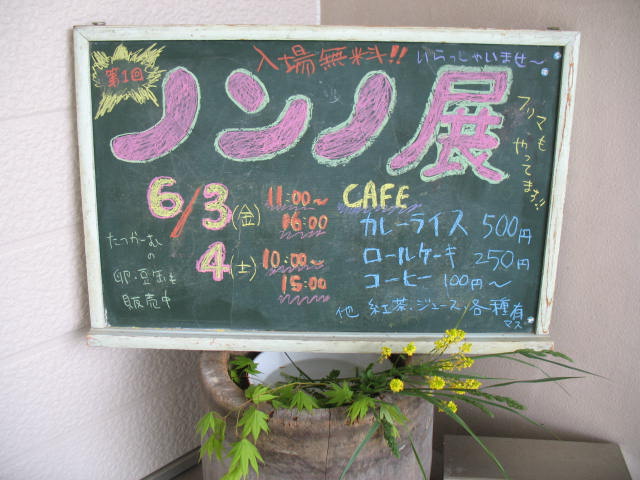 入場無料!!
いらっしゃいませ〜
第1回
ノンノ展
フリマも
やってます!!
6/3(金) 11:00〜
16:00
4(土) 10:00〜
15:00
CAFE
カレーライス 500円
ロールケーキ 250円
コーヒー 100円〜
他 紅茶・ジュース 各種有
マス
たっかーむ
の
卵・豆缶も
販売中